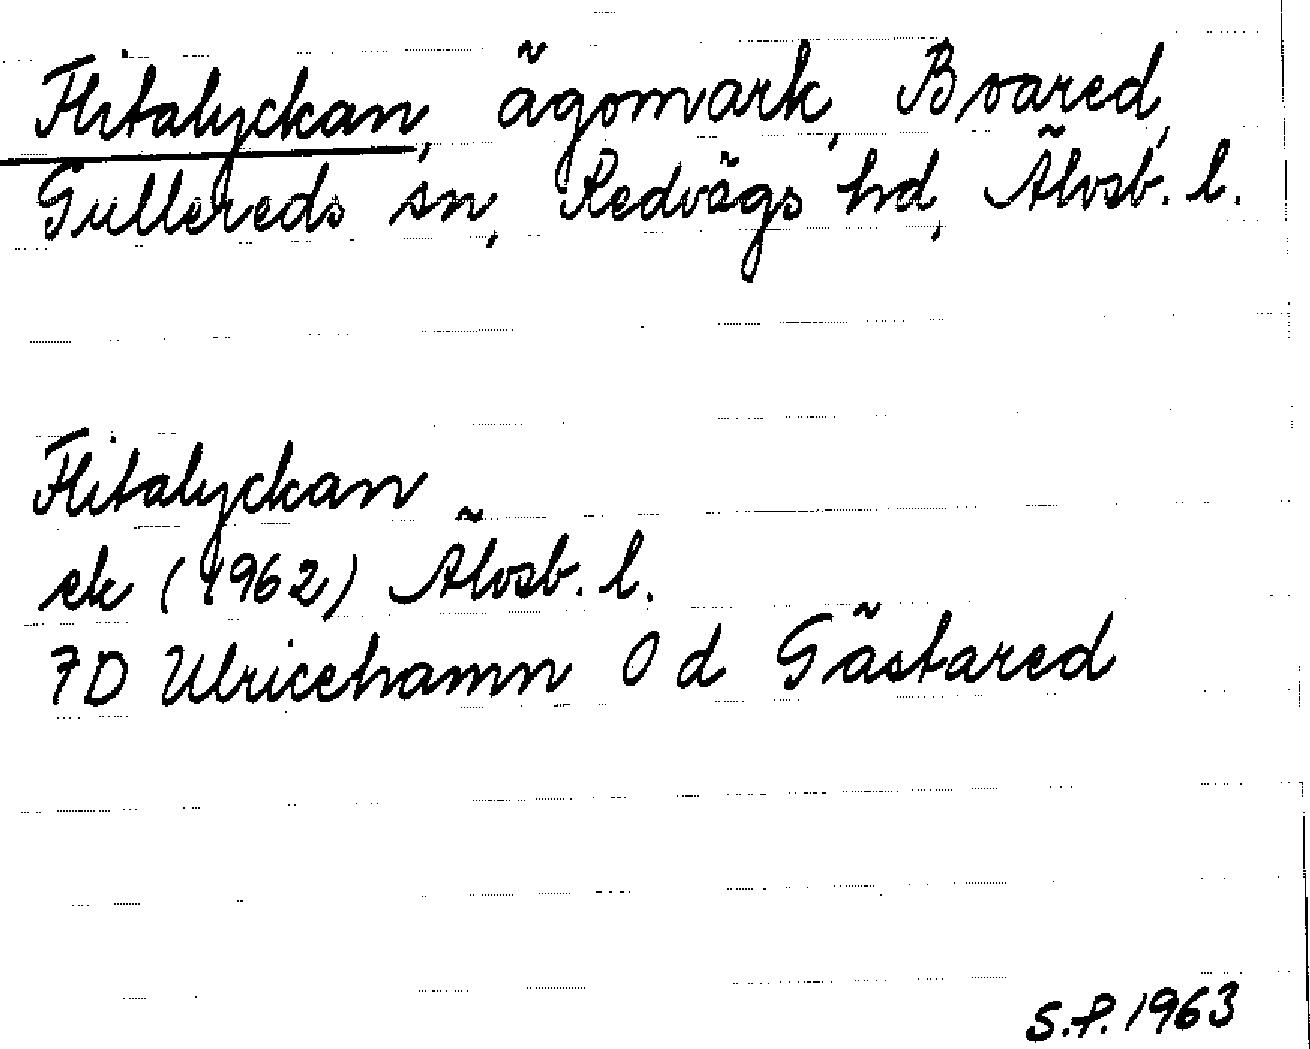 Flitalyckan, ägomark, Boared,
Gullereds sn, Redvägs hd, Älvsb. l.
Flitalyckan
ek (1962) Älvsb. l.
7D Ulricehamn 0 d Gästared
S.P. 1963